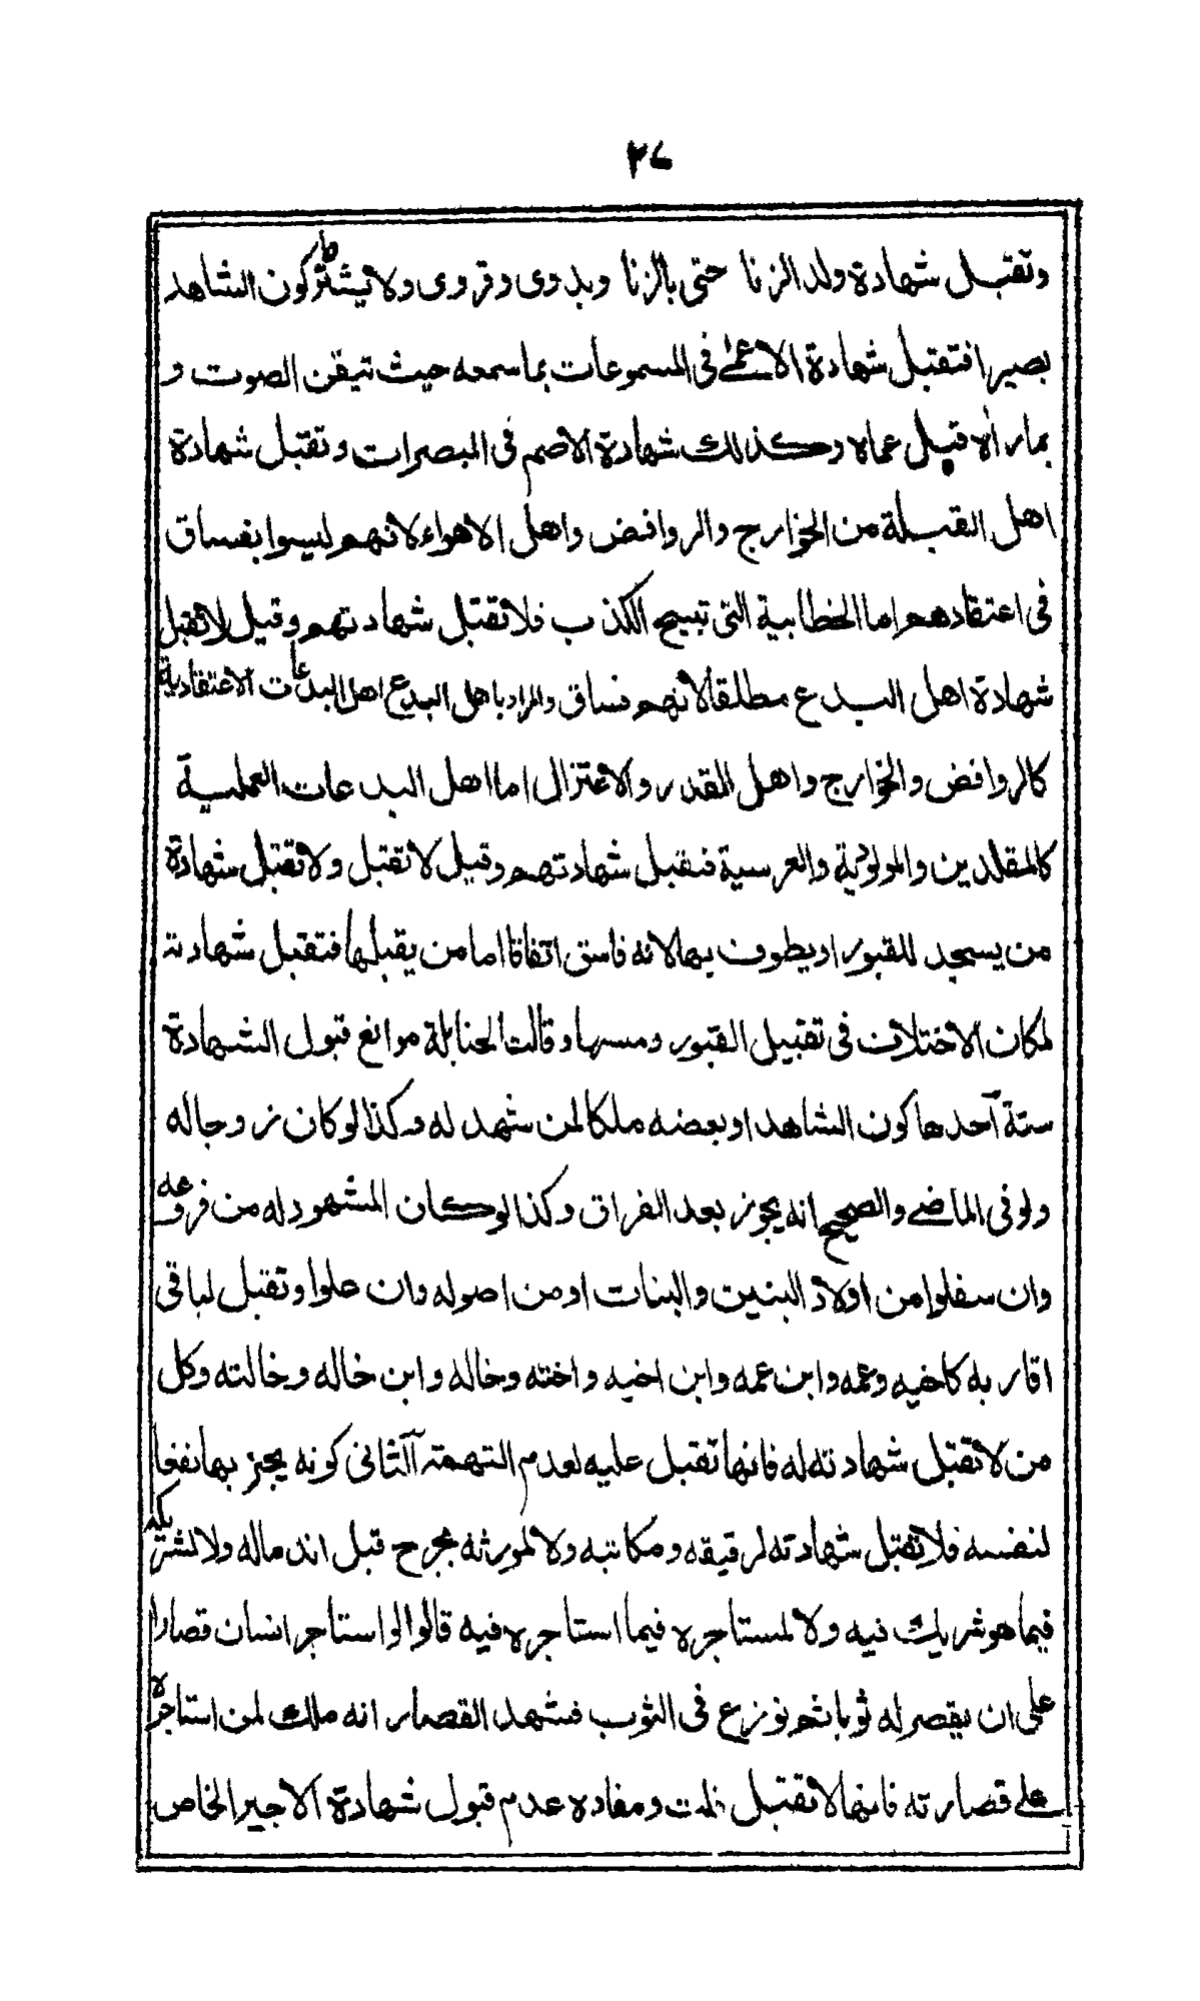 ٢٧
وتقبل شهادة ولد الزنا حتى بالزنا وبدوى وقروى ولا يشترط كون الشاهد
بصيرا فتقبل شهادة الاعمى فى المسموعات بما سمعه حيث تيقن الصوت و
بما رأه قبل عماه وكذلك شهادة الاصم فى المبصرات وتقبل شهادة
اهل القبلة من الخوارج والروافض واهل الاهواء لانهم ليسوا بفساق
فى اعتقادهم اما الخطابية التى تبيح الكذب فلا تقبل شهادتهم وقيل لا تقبل
شهادة اهل البدع مطلقا لانهم فساق والمراد باهل البدع اهل البدعات الاعتقادية
كالروافض والخوارج واهل القدر والاعتزال اما اهل البدعات العملية
كالمقلدين والمولودية والعرسية فتقبل شهادتهم وقيل لا تقبل ولا تقبل شهادة
من يسجد للقبور او يطوف بها لانه فاسق اتفاقا اما من يقبلها فتقبل شهادته
لمكان الاختلاف فى تقبيل القبور ومسها وقالت الحنابلة موانع قبول الشهادة
ستة آحدها كون الشاهد او بعضه ملكا لمن شهد له وكذا لو كان زوجا له
ولو فى الماضى والصحيح انه يجوز بعد الفراق وكذا لو كان المشهود له من فروعه
وان سفلوا من اولاد البنين والبنات او من اصوله وان علوا وتقبل لباقى
اقاربه كاخيه وعمه وابن عمه وابن اخيه واخته وخاله وابن خاله وخالته وكل
من لا تقبل شهادته له فانها تقبل عليه لعدم التهمة آلثانى كونه يجز بها نفعا
لنفسه فلا تقبل شهادته لرقيقه ومكاتبه ولا لمورثه بجرح قبل اندماله ولا لشريكه
فيما هو شريك فيه ولا لمستاجره فيما استاجره فيه قالوا لو استاجر انسان قصارا
على ان يقصر له ثوبا ثم نوزع فى الثوب فشهد القصار انه ملك لمن استاجره
على قصارته فانها لا تقبل قلت ومفاده عدم قبول شهادة الاجير الخاص